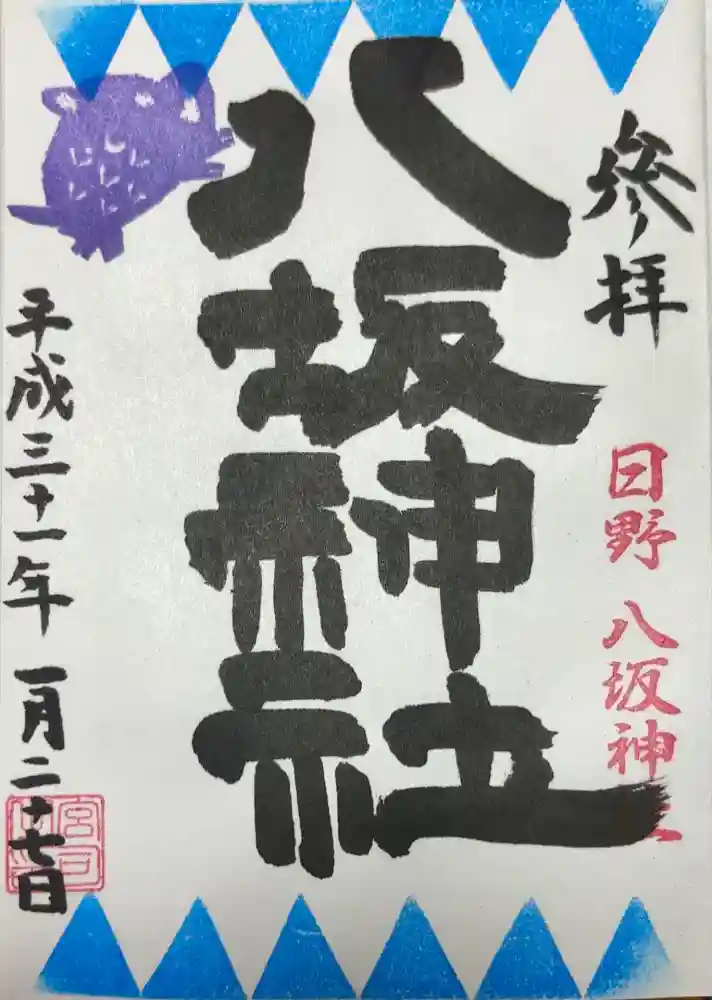 參拝
日野 八坂神社
八坂神社
平成三十一年 一月二十七日